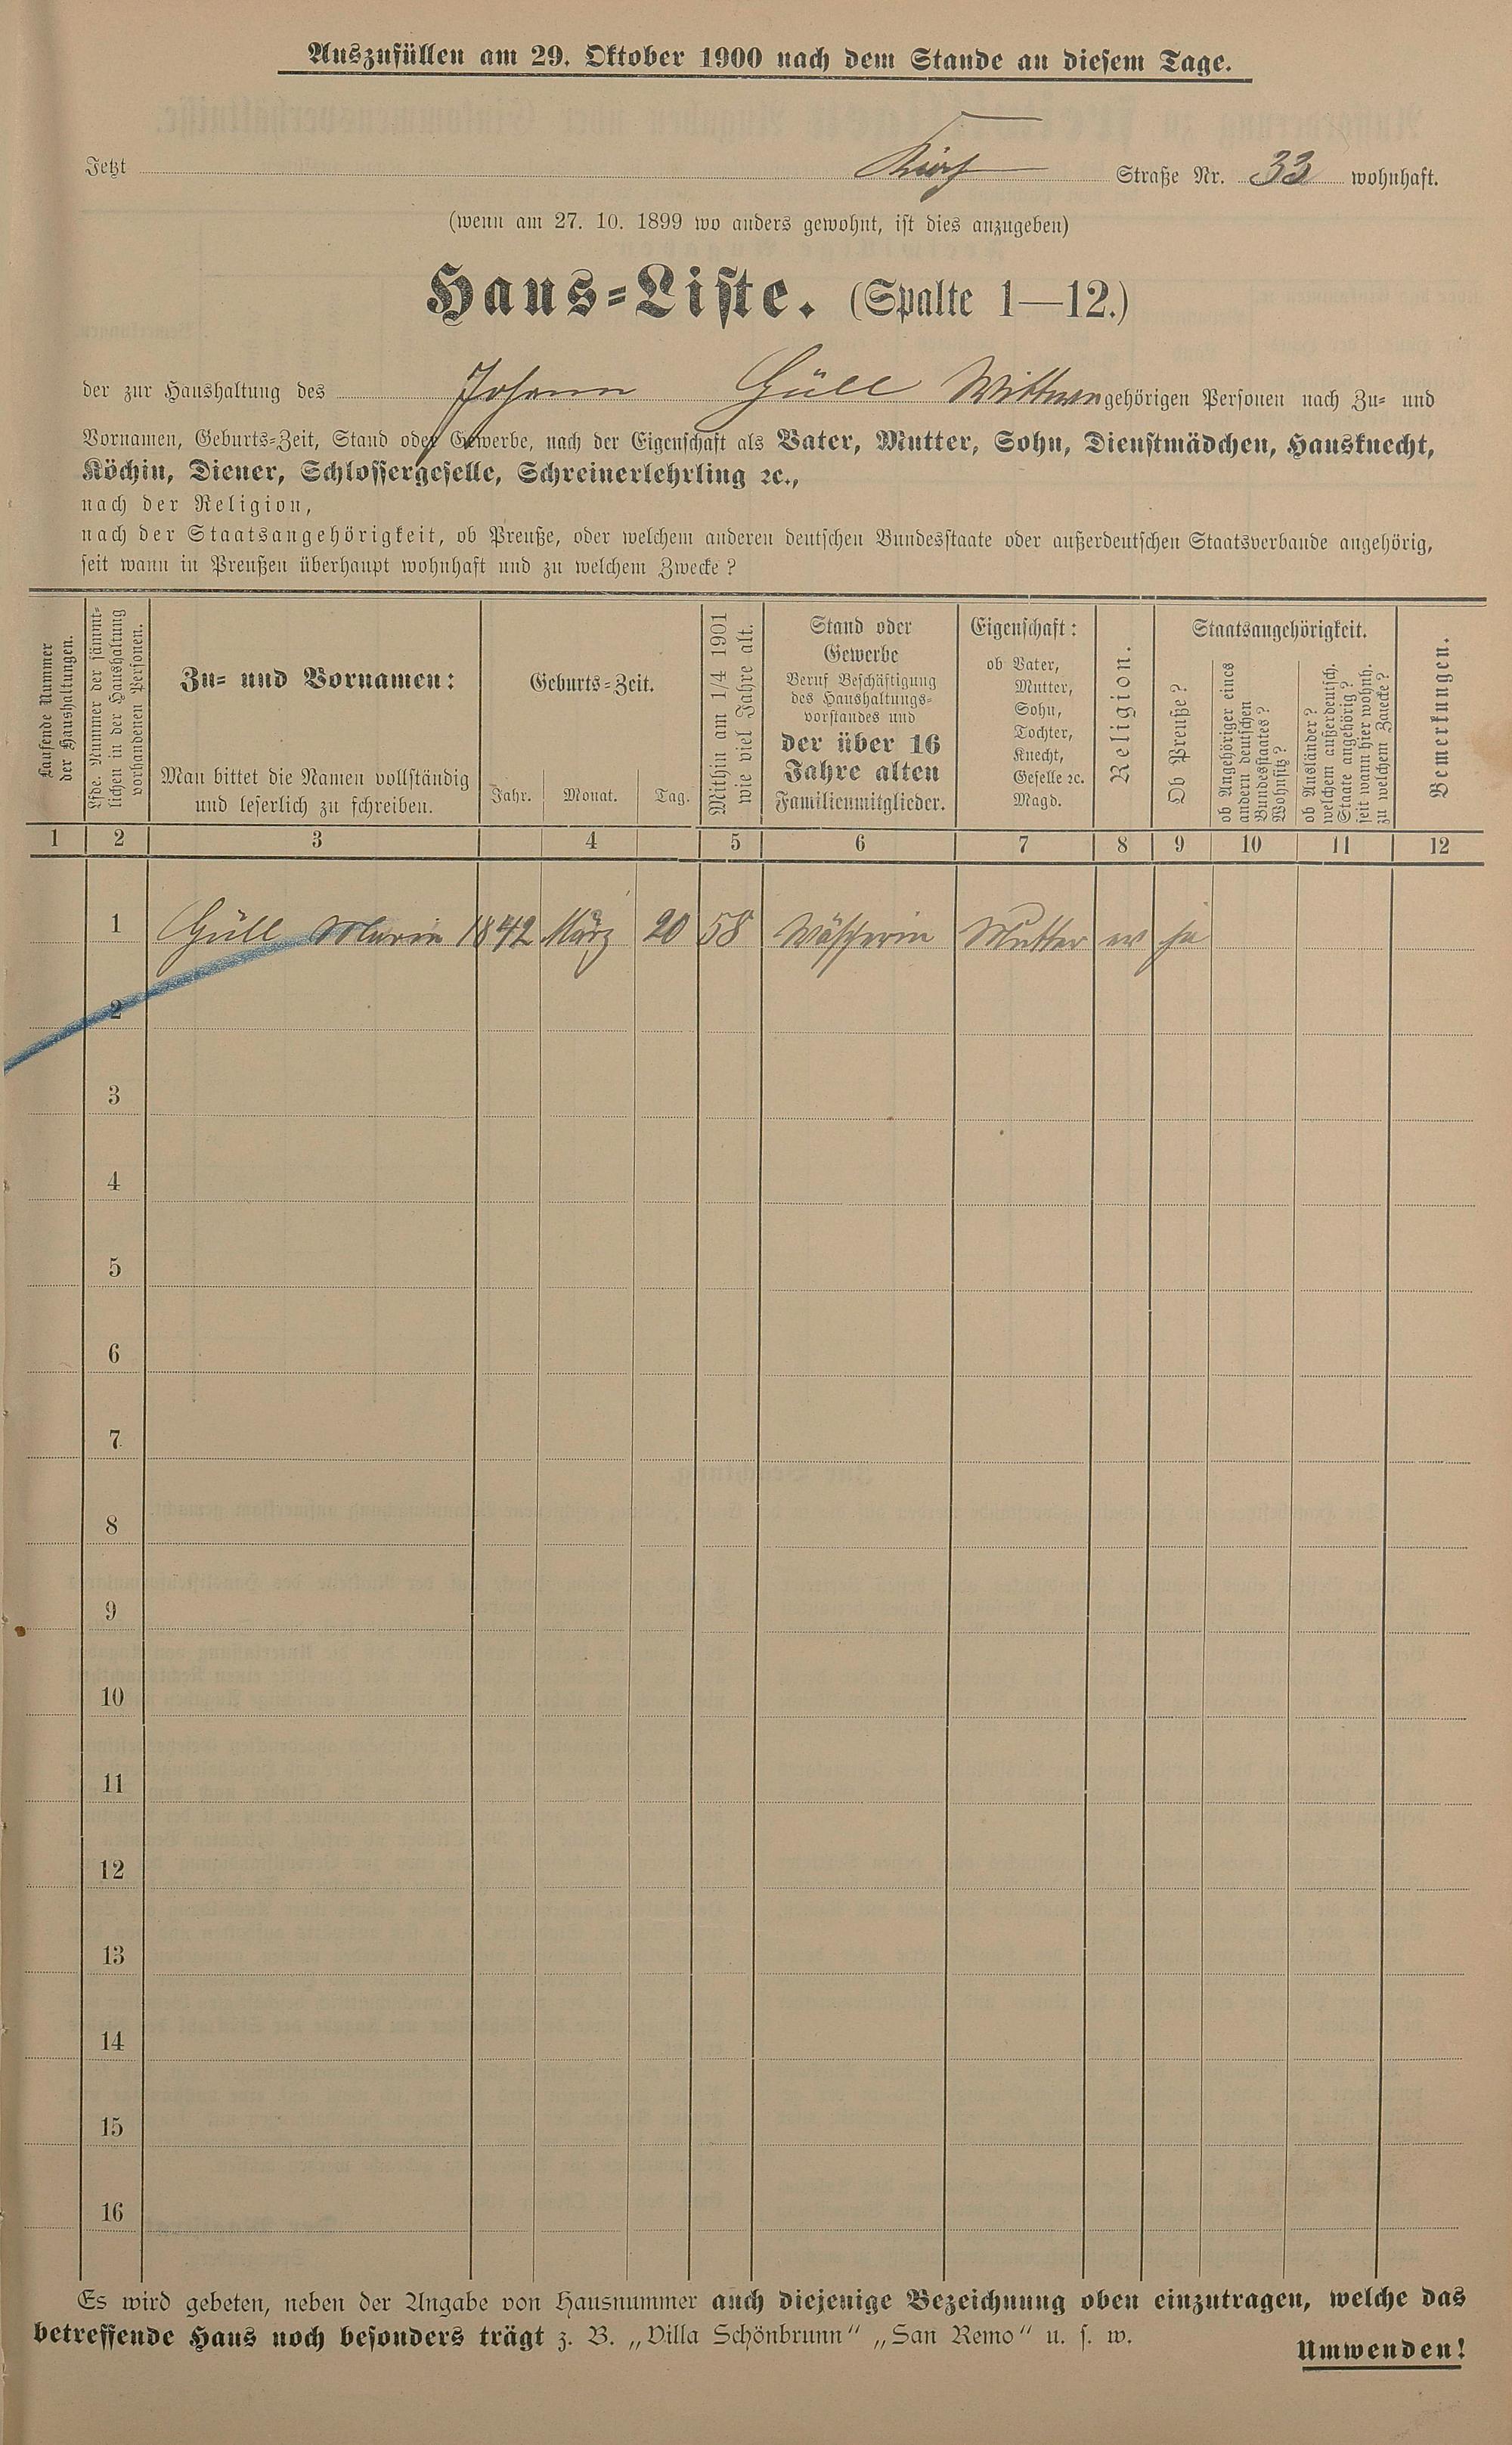 Auszufüllen am 29. Oktober 1900 nach dem Stande an diesem Tage.
Jetzt Straße Nr. 33 wohnhaft.
(wenn am 27. 10. 1899 wo anders gewohnt, ist dies anzugeben)
Haus-Liste. (Spalte 1—12.)
der zur Haushaltung des Johann Güll Wittwe gehörigen Personen nach Zu- und
Vornamen, Geburts-Zeit, Stand oder Gewerbe, nach der Eigenschaft als Vater, Mutter, Sohn, Dienstmädchen, Hausknecht,
Köchin, Diener, Schlossergeselle, Schreinerlehrling ꝛc.,
nach der Religion,
nach der Staatsangehörigkeit, ob Preuße, oder welchem anderen deutschen Bundesstaate oder außerdeutschen Staatsverbande angehörig,
seit wann in Preußen überhaupt wohnhaft und zu welchem Zwecke?
Laufende Nummer
der Haushaltungen.
Lfde. Nummer der sämmt-
lichen in der Haushaltung
vorhandenen Personen.
Zu- und Vornamen:
Man bittet die Namen vollständig
und leserlich zu schreiben.
Geburts-Zeit.
Jahr. Monat. Tag.
Mithin am 1/4 1901
wie viel Jahre alt.
Stand oder
Gewerbe
Beruf Beschäftigung
des Haushaltungs-
vorstandes und
der über 16
Jahre alten
Familienmitglieder.
Eigenschaft:
ob Vater,
Mutter,
Sohn,
Tochter,
Knecht,
Geselle ꝛc.
Magd.
Religion.
Staatsangehörigkeit.
Ob Preuße?
ob Angehöriger eines
andern deutschen
Bundesstaates?
Wohnsitz?
ob Ausländer?
welchem außerdeutsch.
Staate angehörig?
seit wann hier wohnh.
zu welchem Zwecke?
Bemerkungen.
1 2 3 4 5 6 7 8 9 10 11 12
1 Güll Marie 1842 März 20 58 Wäscherin Mutter ev ja
2
3
4
5
6
7
8
9
10
11
12
13
14
15
16
Es wird gebeten, neben der Angabe von Hausnummer auch diejenige Bezeichnung oben einzutragen, welche das
betreffende Haus noch besonders trägt z. B. „Villa Schönbrunn“ „San Remo“ u. s. w.
Umwenden!